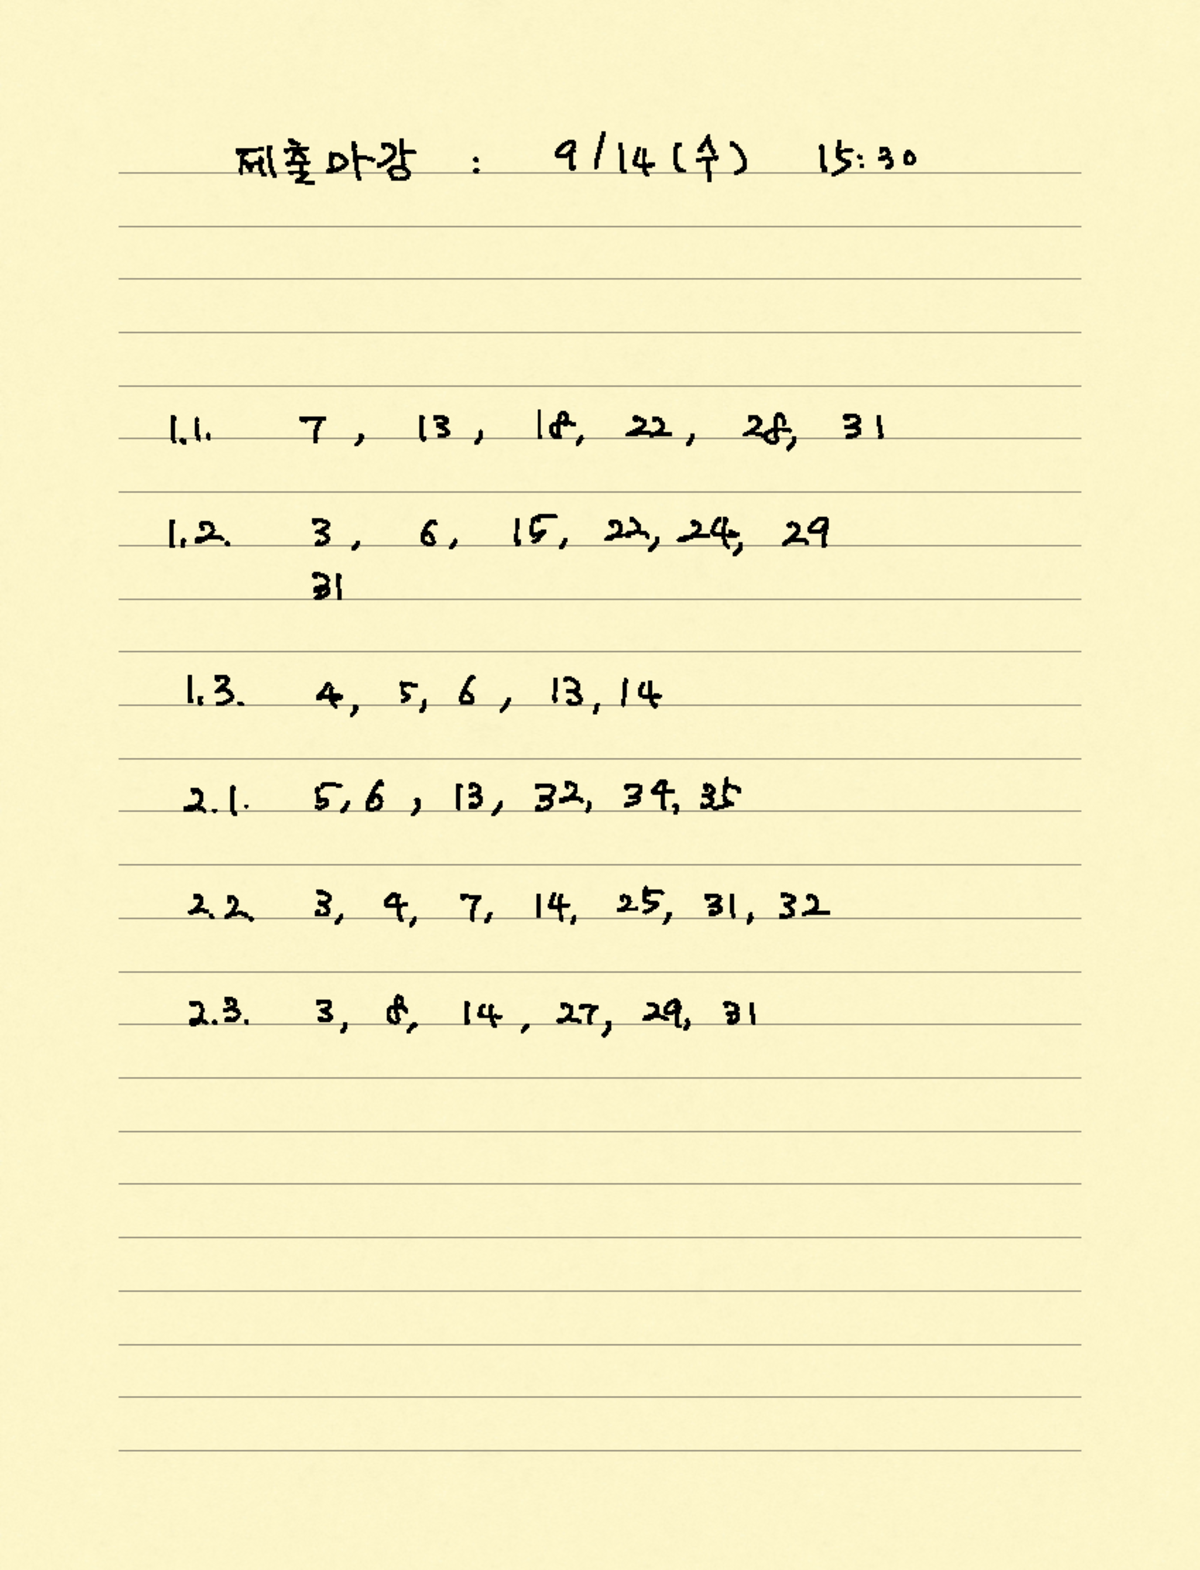 제출마감 : 9/14(수) 15:30
1.1. 7, 13, 18, 22, 28, 31
1.2. 3, 6, 15, 22, 24, 29
31
1.3. 4, 5, 6, 13, 14
2.1. 5, 6, 13, 32, 34, 35
2.2. 3, 4, 7, 14, 25, 31, 32
2.3. 3, 8, 14, 27, 29, 31